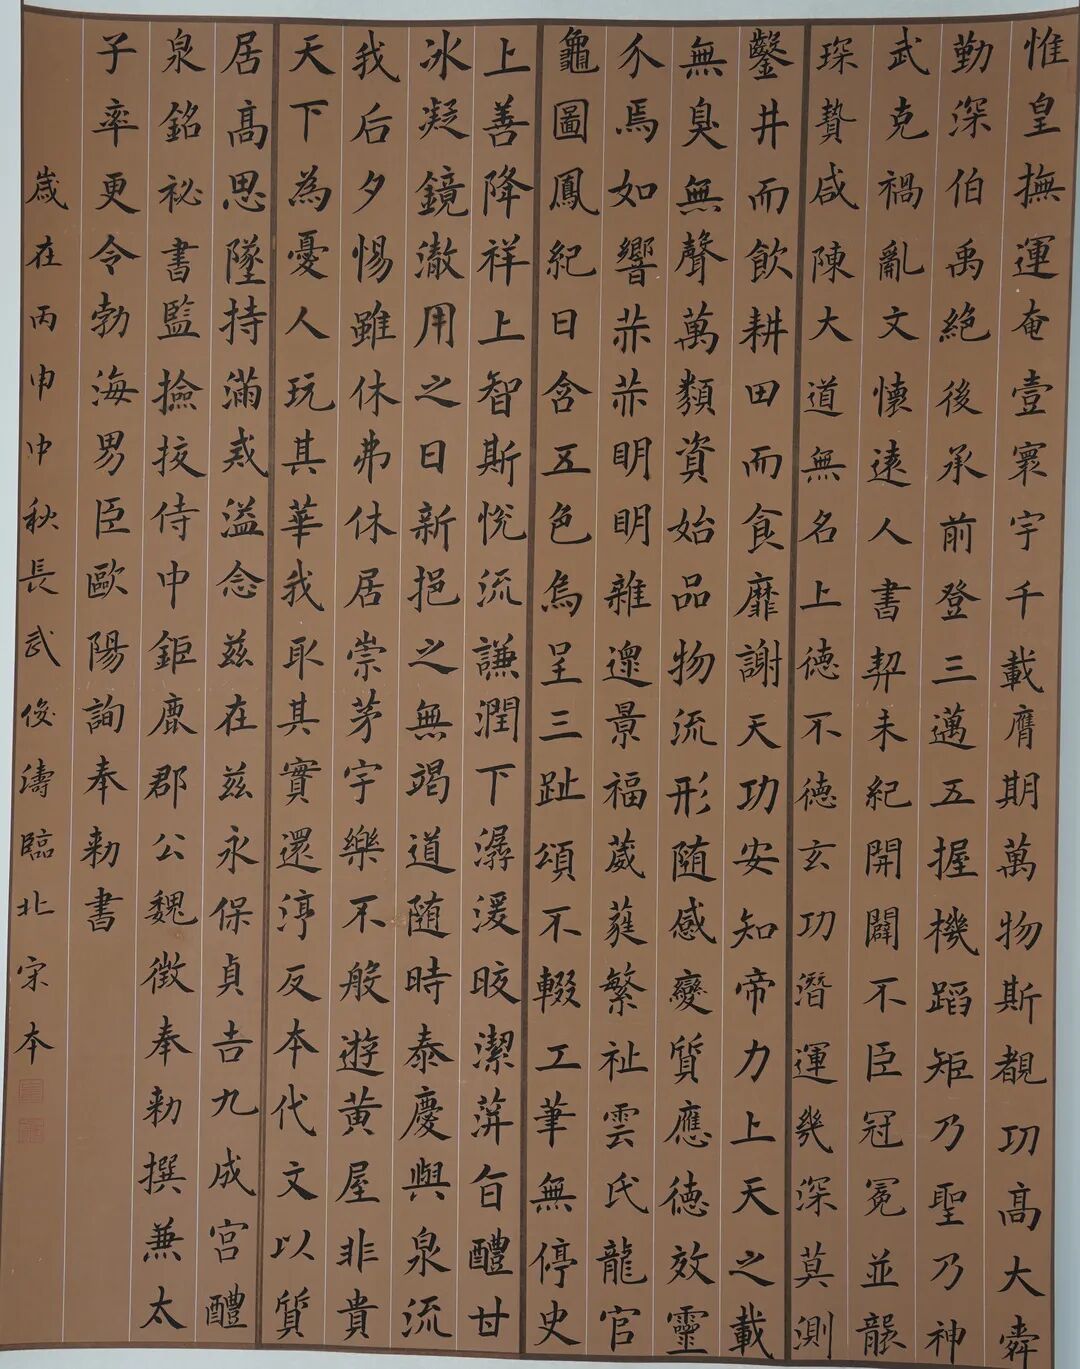 惟皇撫運奄壹寰宇千載膺期萬物斯覩功高大舜
勤深伯禹絶後承前登三邁五握機蹈矩乃聖乃神
武克禍亂文懷遠人書契未紀開闢不臣冠冕並襲
琛贄咸陳大道無名上德不德玄功潛運幾深莫測
鑿井而飲耕田而食靡謝天功安知帝力上天之載
無臭無聲萬類資始品物流形随感變質應德效靈
介焉如響赫赫明明雜遝景福葳蕤繁祉雲氏龍官
龜圖鳳紀日含五色烏呈三趾頌不輟工筆無停史
上善降祥上智斯悅流謙潤下潺湲皎潔蓱旨醴甘
冰凝鏡澈用之日新挹之無竭道随時泰慶與泉流
我后夕惕雖休弗休居崇茅宇樂不般遊黄屋非貴
天下為憂人玩其華我取其實還淳反本代文以質
居高思墜持滿戒溢念兹在兹永保貞吉九成宮醴
泉銘祕書監撿挍侍中鉅鹿郡公魏徵奉勑撰兼太
子率更令勃海男臣歐陽詢奉勑書
歲在丙申中秋長武俊濤臨北宋本